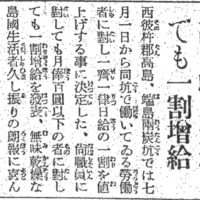 でも一割増給
西彼杵郡高島、端島兩炭坑では七
月一日から同坑で働いてゐる勞働
者に對し一齊一律日給の一割を値
上げする事に決定した、尙職員に
對しても月俸百圓以下の者に對し
ても一割增給を發表、無味乾燥な
島國生活者久し振りの朗報に喜ん